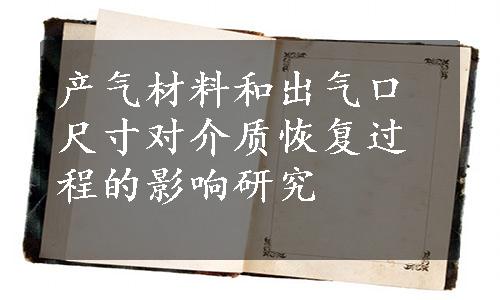 产气材料和出气口
尺寸对介质恢复过
程的影响研究